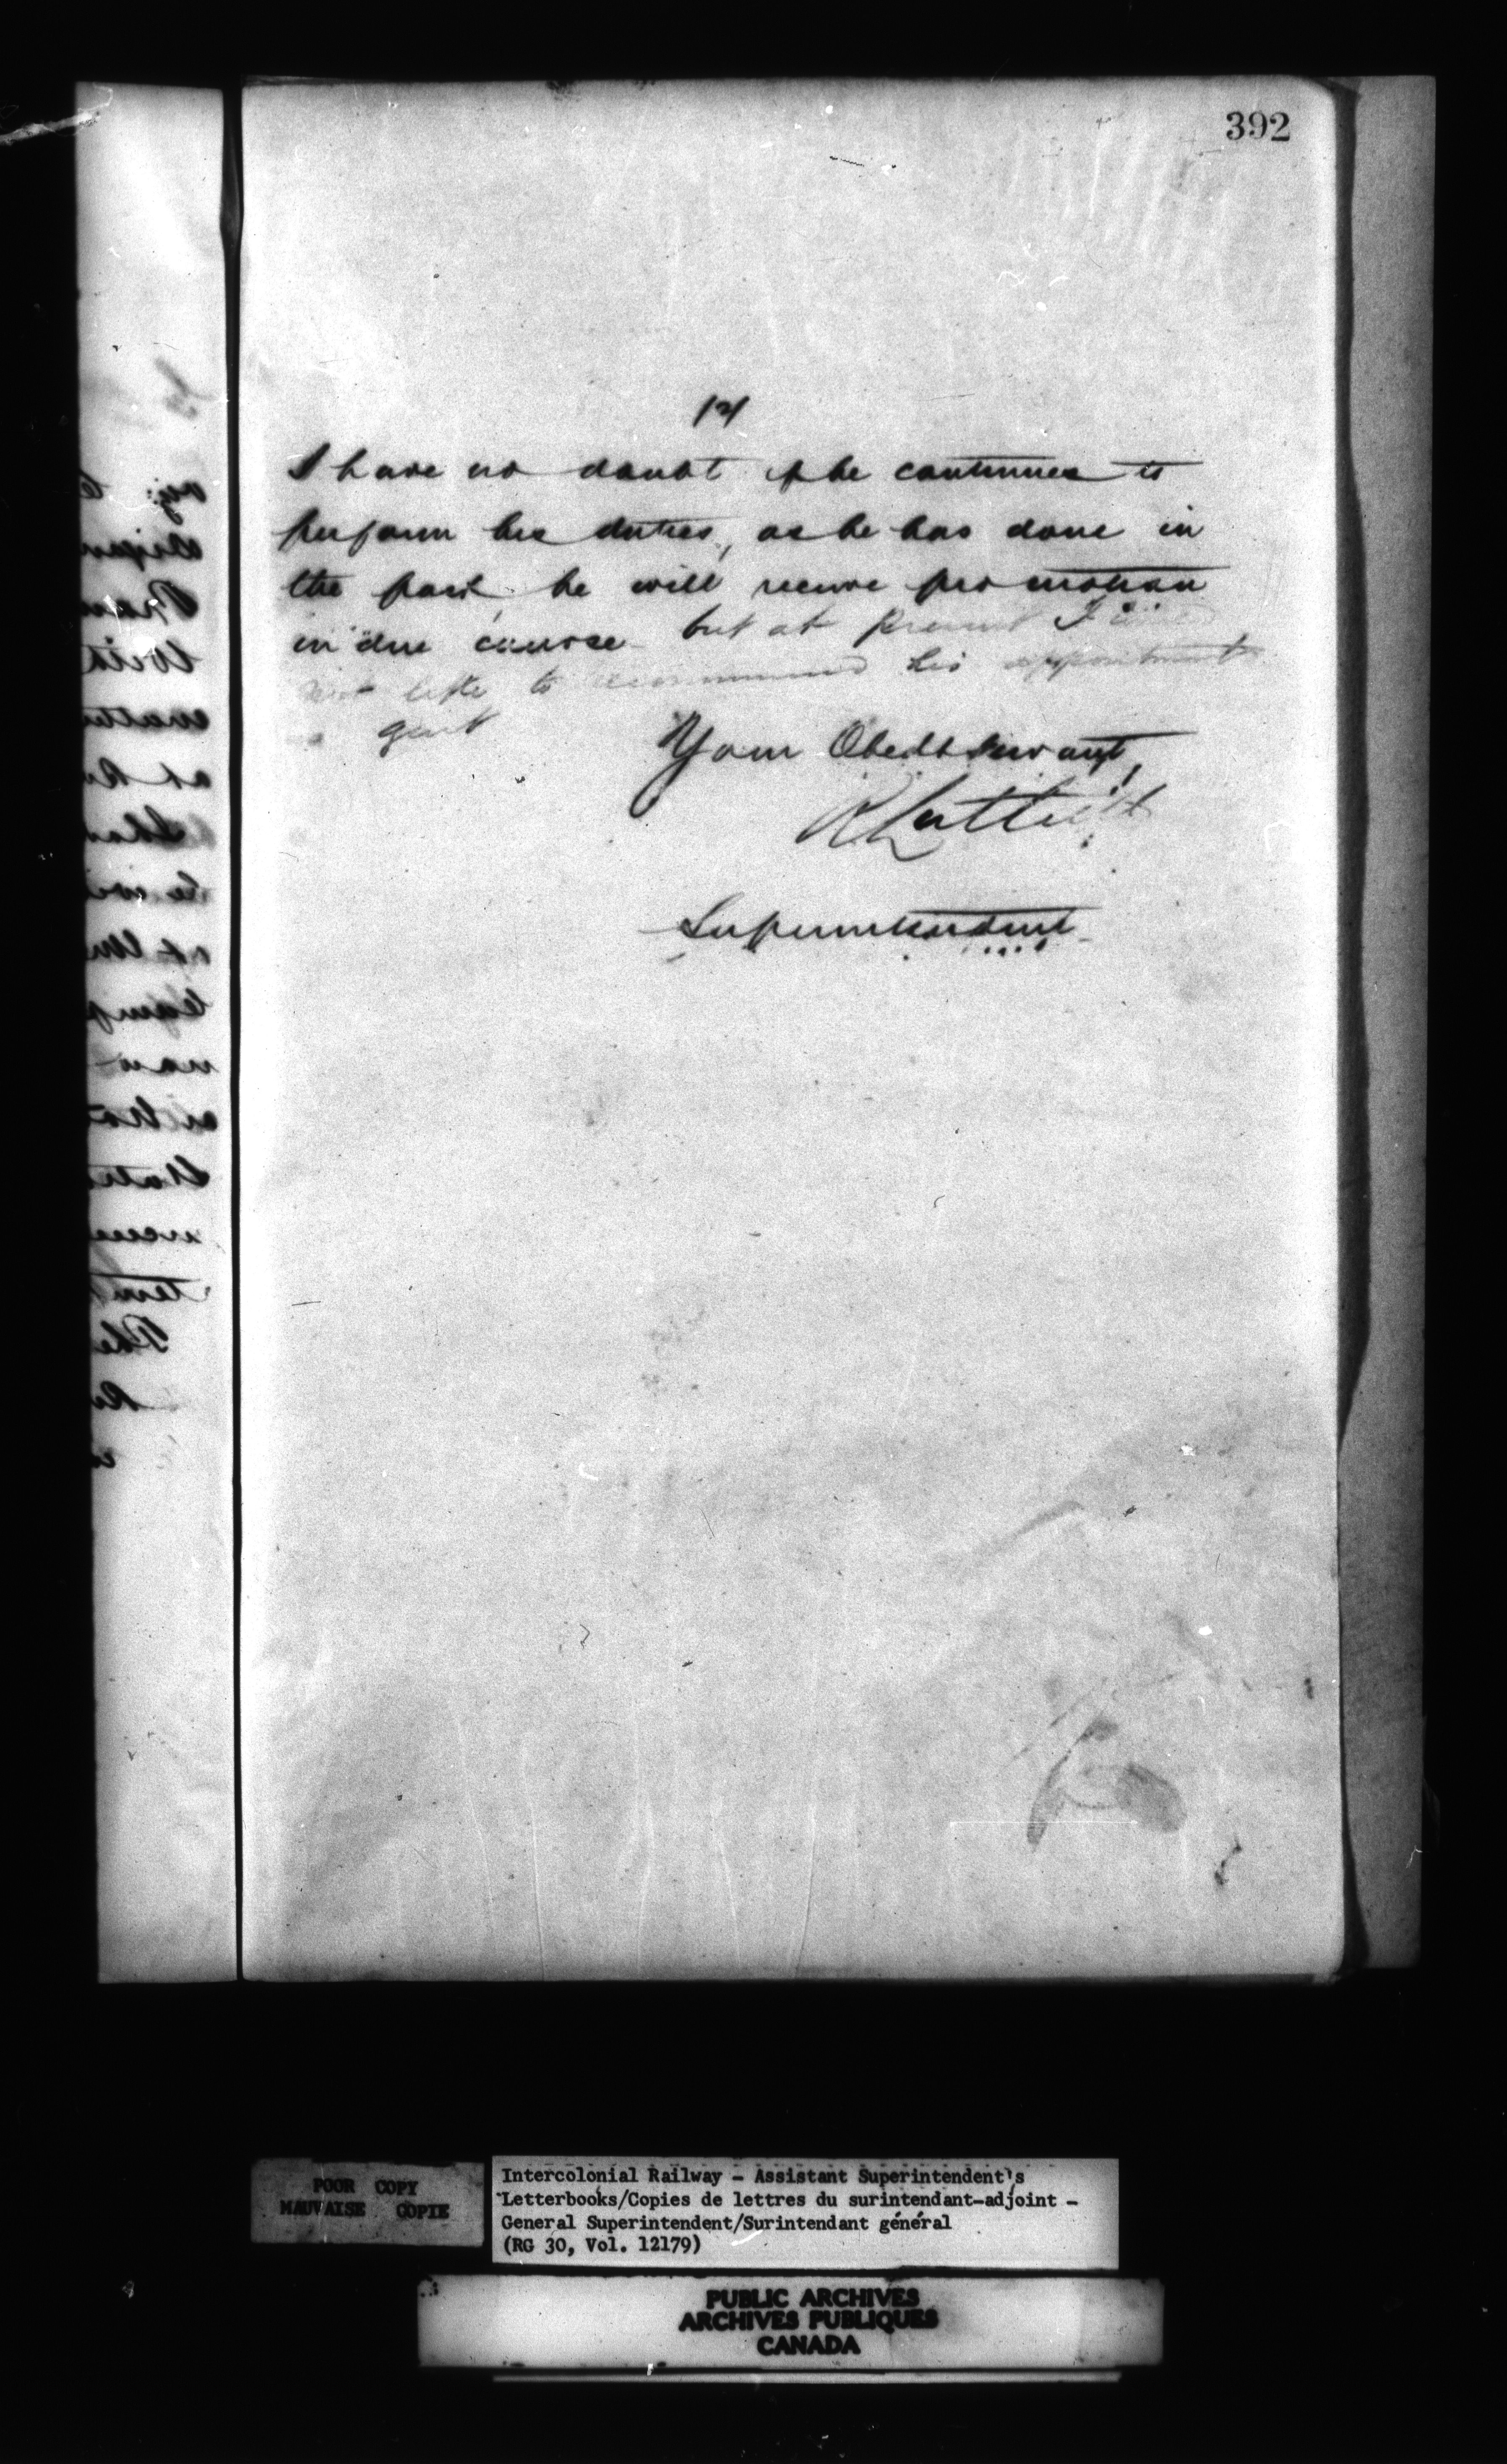 392
/2/
I have no doubt if he continues to
perform his duties, as he has done in
the past, he will receive promotion
in due course but at present I
not like to recommend his appointment
Your Obedt Servant,
R Luttrell
Superintendent
POOR COPY
MAUVAISE COPIE
Intercolonial Railway - Assistant Superintendent's
Letterbooks/Copies de lettres du surintendant-adjoint -
General Superintendent/Surintendant général
(RG 30, Vol. 12179)
PUBLIC ARCHIVES
ARCHIVES PUBLIQUES
CANADA